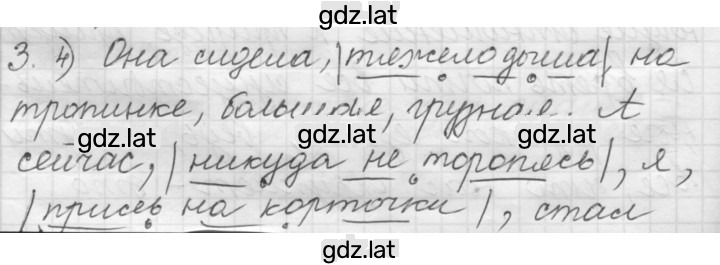 gdz.lat
3. 4) Она сидела, |тяжело дыша|, на
тропинке, большая, грузная. А
gdz.lat gdz.lat
сейчас, |никуда не торопясь|, я,
|присев на корточки|, стал
gdz.lat